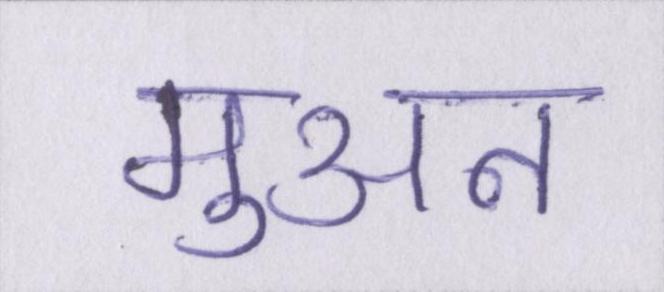 मुअन